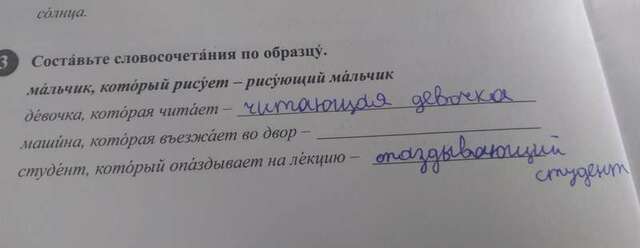 со́лнца.
3 Соста́вьте словосочета́ния по образцу́.
ма́льчик, кото́рый рису́ет – рису́ющий ма́льчик
де́вочка, кото́рая чита́ет – читающая девочка
маши́на, кото́рая въезжа́ет во двор –
студе́нт, кото́рый опа́здывает на ле́кцию – опаздывающий
студент